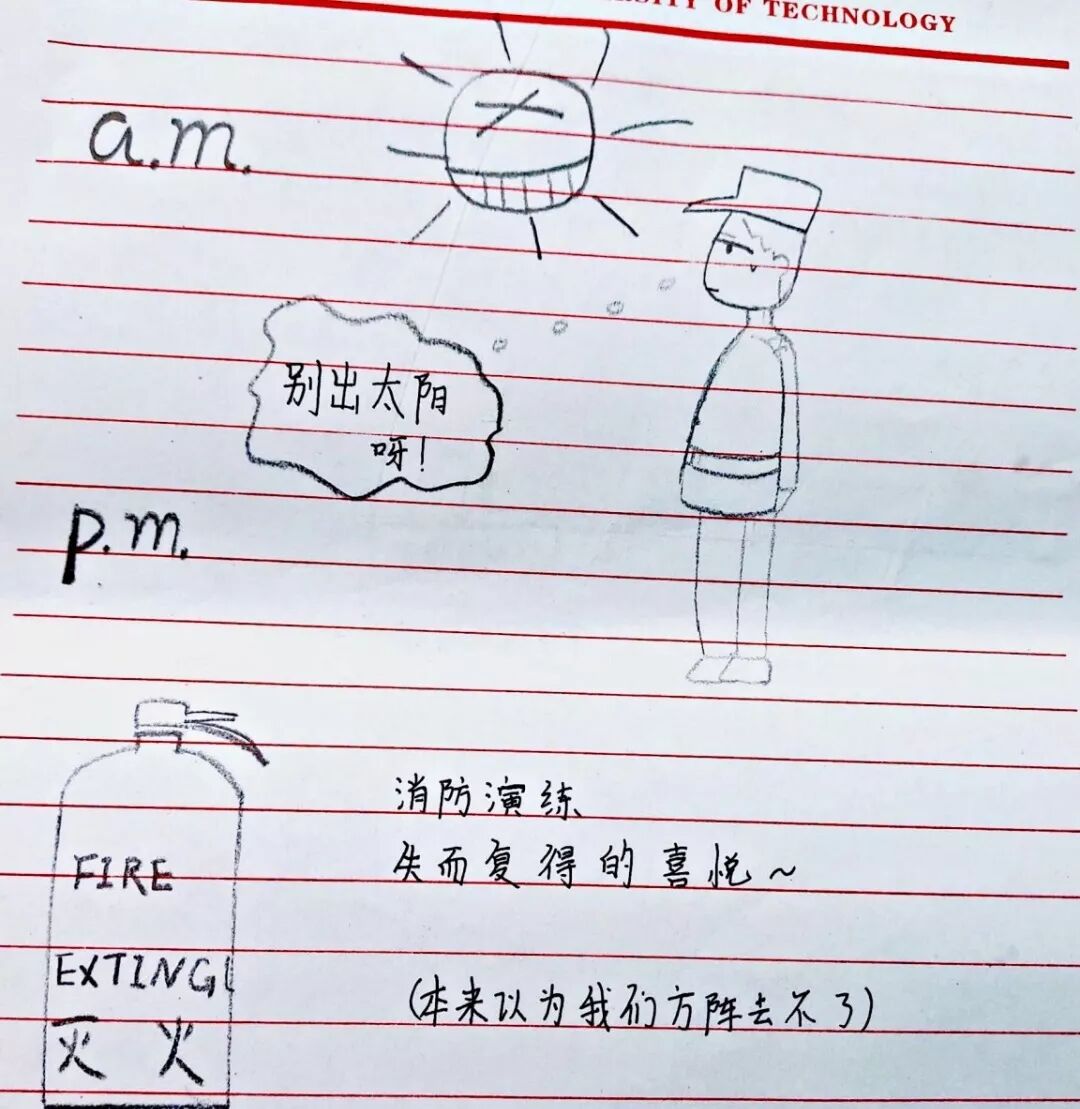 OF TECHNOLOGY
a.m.
别出太阳
呀!
p.m.
消防演练
失而复得的喜悦~
FIRE
EXTING
(本来以为我们方阵去不了)
灭火